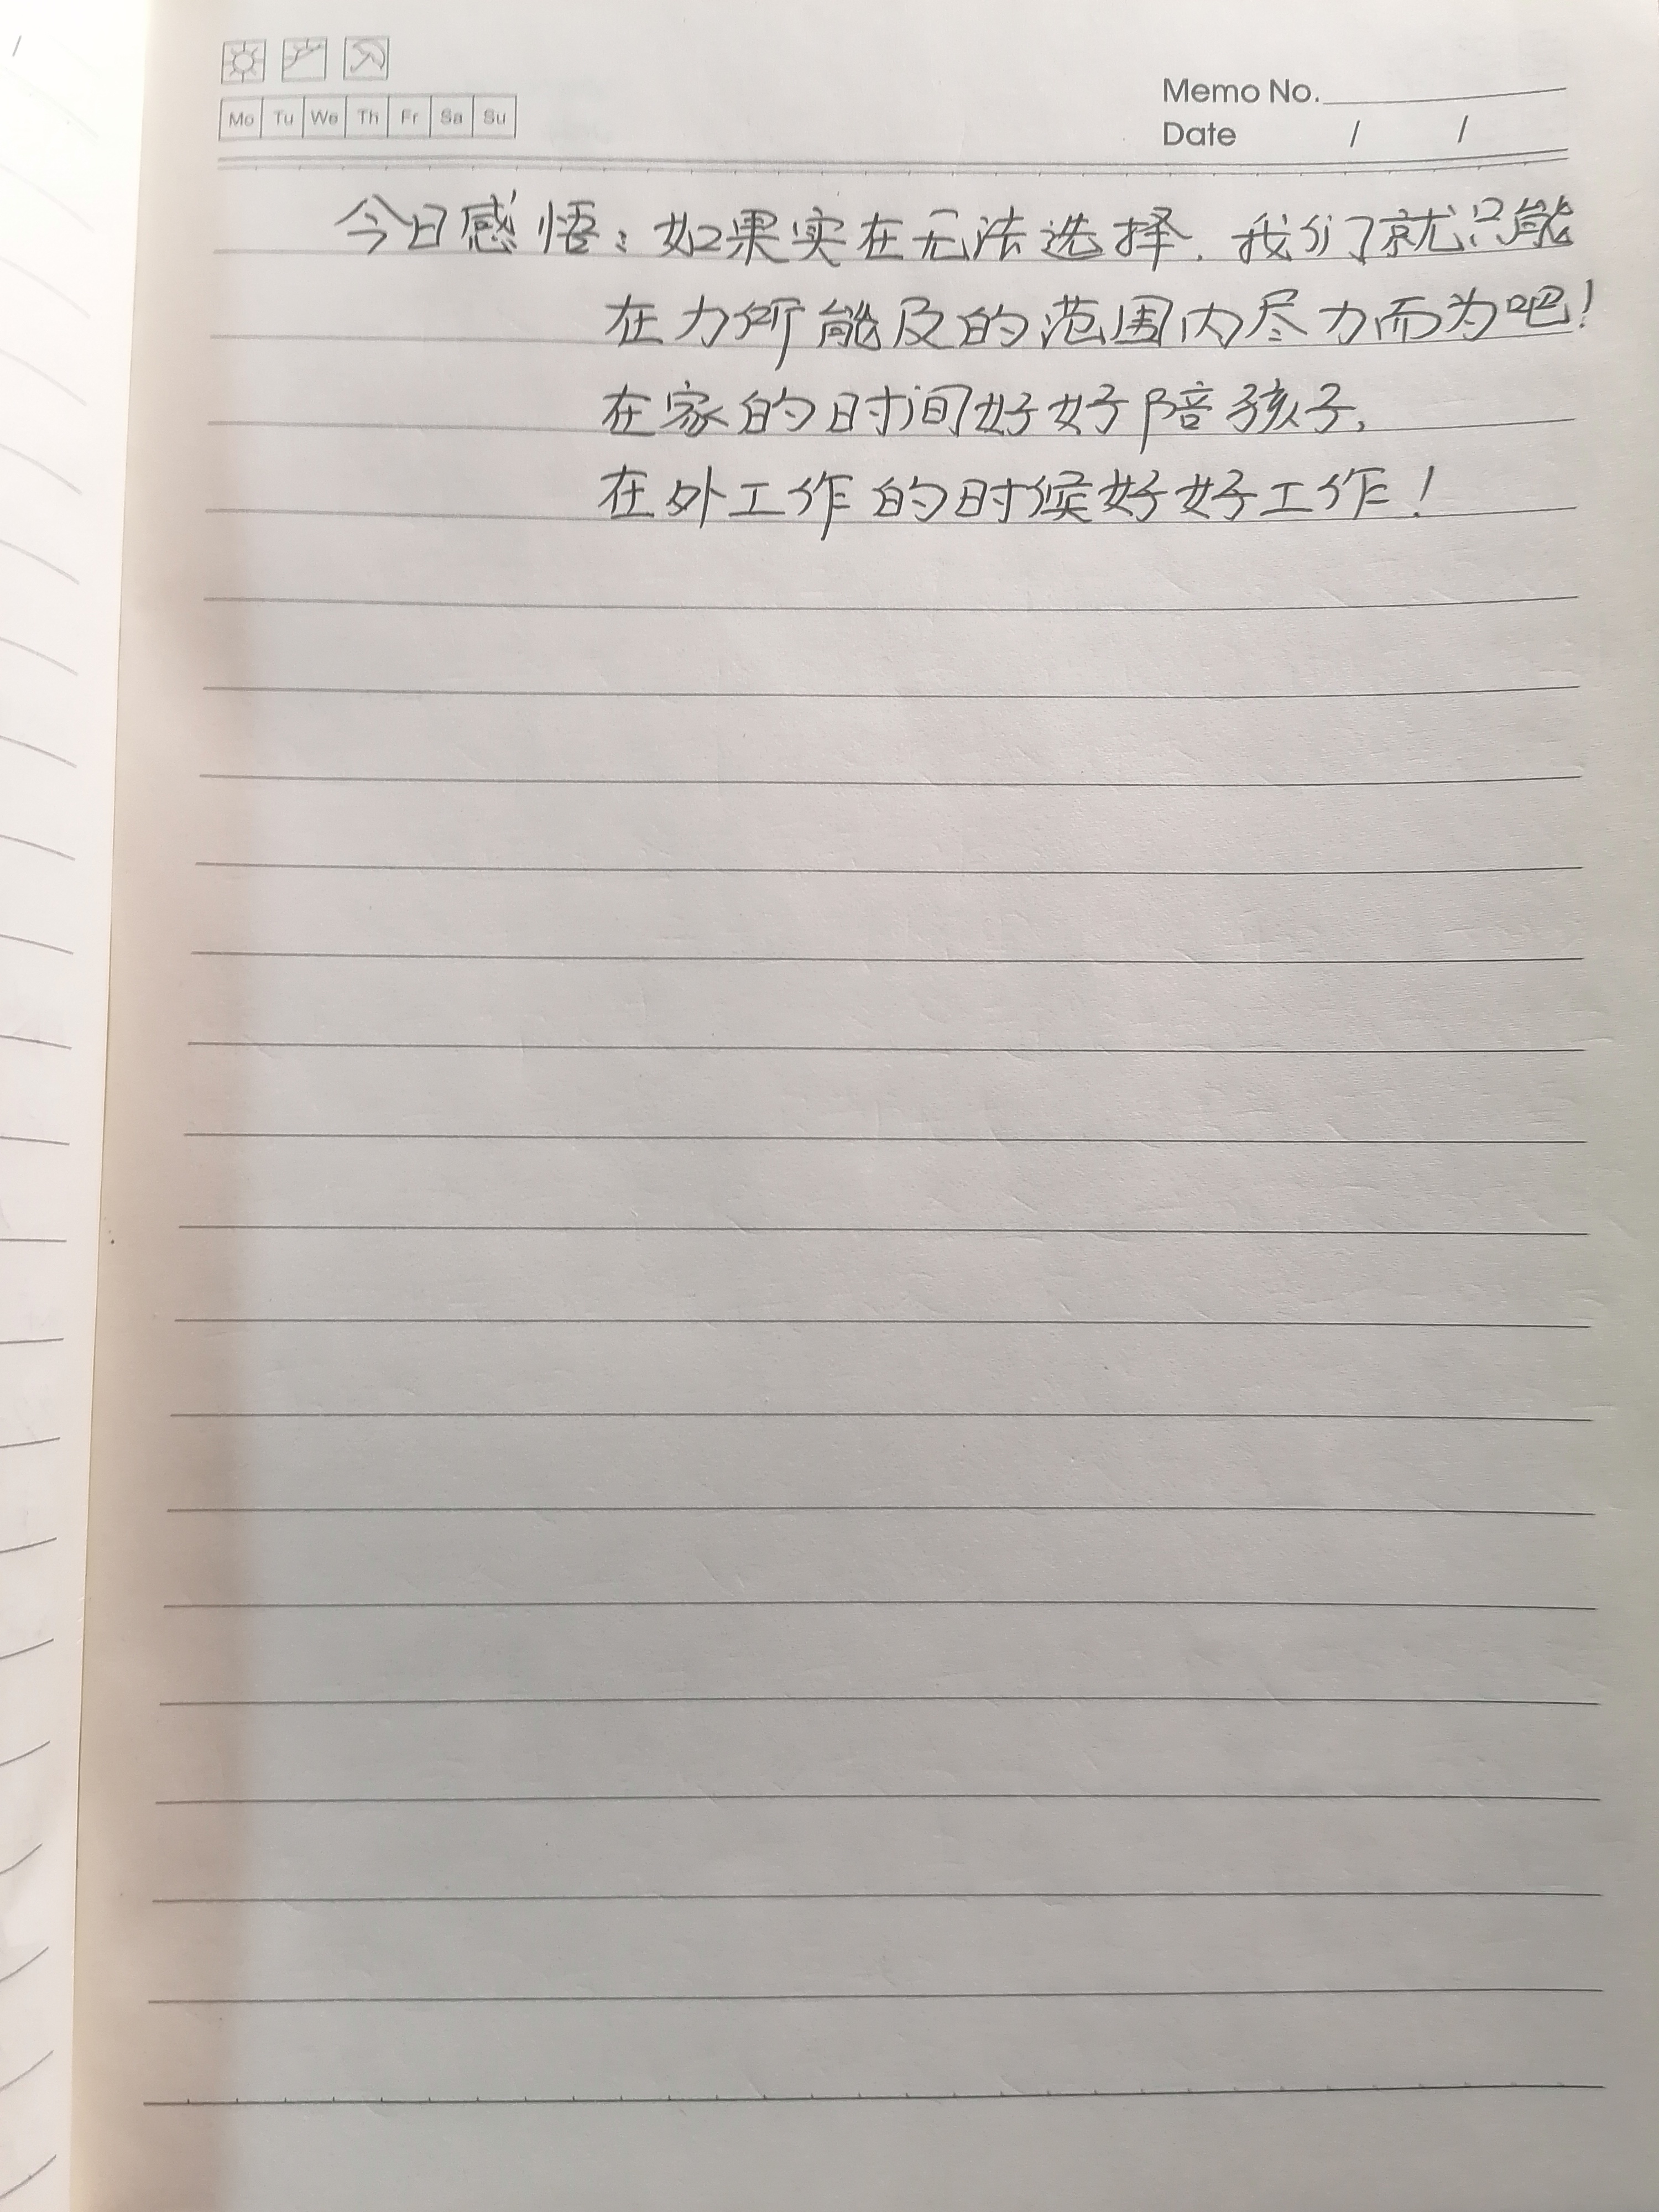 Memo No.
Mo Tu We Th Fr Sa Su
Date / /
今日感悟：如果实在无法选择，我们就只能
在力所能及的范围内尽力而为吧！
在家的时间好好陪孩子，
在外工作的时候好好工作！